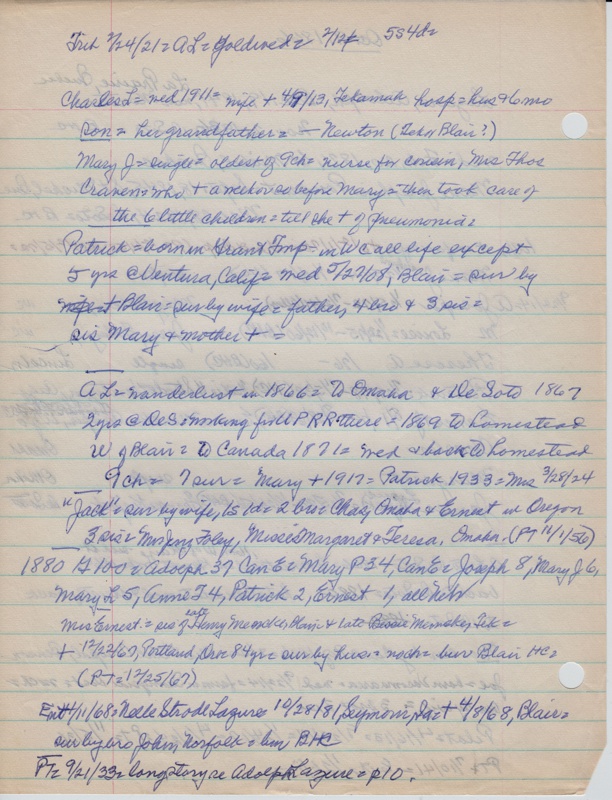 Trib 2/24/21 = AL = Goldwed = 2/12 554d =
Charles L = wed 1911 = wife + 4/9/13, Tekamah hosp = hus & 6 mo
son = her grandfather = - Newton (Tek or Blair?)
Mary J = single = oldest of 9ch = nurse for cousin, Mrs Thos
Craven = who + a mo or so before Mary = then took care of
the 6 little children = till she + of pneumonia =
Patrick = born in Grant Tmp = in W C all life except
5 yrs @ Ventura, Calif = wed 5/27/08, Blair = sur by
Blair = sur by wife = father, 4 bro & 3 sis =
sis Mary & mother + =
AL = wanderlust in 1866 = to Omaha & De Soto 1867
2 yrs @ DeS = working for UPRR there = 1869 to homestead
W of Blair = to Canada 1871 = wed & back to homestead
9ch = 7 sur = Mary + 1917 = Patrick 1933 = Mrs 3/28/24
"Jack" = sur by wife, 1s 1d = 2 bro = Chas, Omaha & Ernest in Oregon
3 sis = Mrs Foley, Misses Margaret & Teresa, Omaha. (PT 11/1/56)
1880 G100 = Adolph 37 Can E = Mary P 34, Can E = Joseph 8, Mary J 6,
Mary L 5, Anna F 4, Patrick 2, Ernest 1, all Neb
Mrs Ernest = sis of late Harry & late Tek =
+ 12/22/67, Portland, Ore = 84 yr = sur by hus = noch = bur Blair HC =
(PT = 12/25/67)
Ent 4/11/68 = Nelle Strode Lazure 10/28/81, Seymour, Ia = + 4/8/68, Blair =
sur by bro John, Norfolk = bur BHC
PT = 9/21/33 = long story re Adolph Lazure = p10.